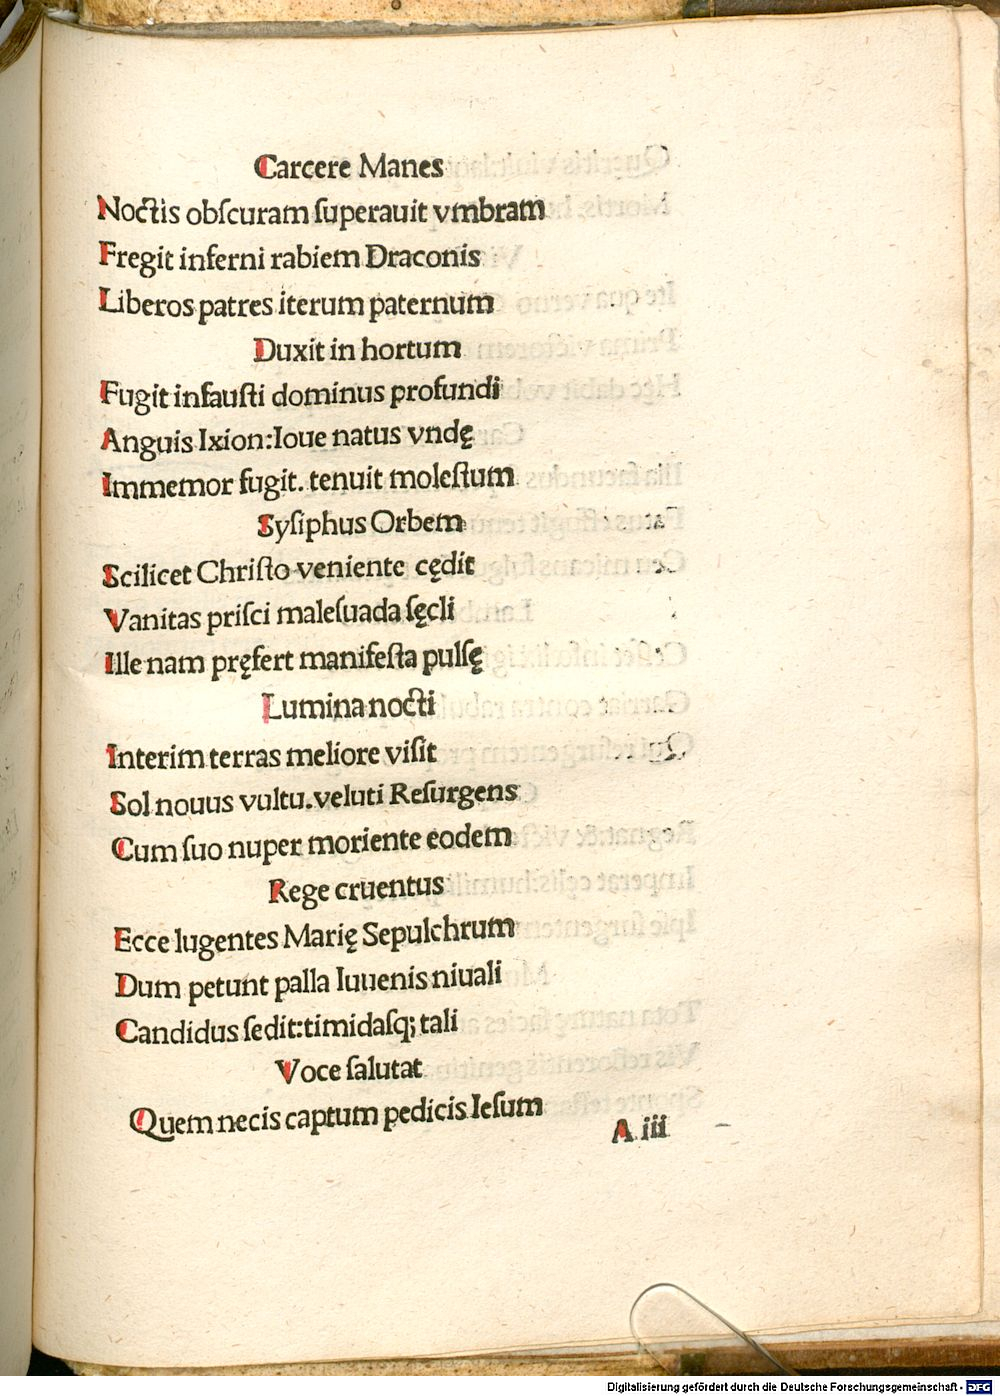 Carcere Manes
Noctis obſcuram ſuperauit vmbram
Fregit inferni rabiem Draconis
Liberos patres iterum paternum
Duxit in hortum
Fugit infauſti dominus profundi
Anguis Ixion:Ioue natus vndę
Immemor fugit. tenuit moleſtum
Syſiphus Orbem
Scilicet Chriſto veniente cędit
Vanitas priſci maleſuada ſęcli
Ille nam pręfert manifeſta pulſę
Lumina nocti
Interim terras meliore viſit
Sol nouus vultu.veluti Reſurgens
Cum ſuo nuper moriente eodem
Rege cruentus
Ecce lugentes Marię Sepulchrum
Dum petunt palla Iuuenis niuali
Candidus ſedit:timidaſq; tali
Voce ſalutat
Quem necis captum pedicis Ieſum
A iii
Digitalisierung gefördert durch die Deutsche Forschungsgemeinschaft - DFG